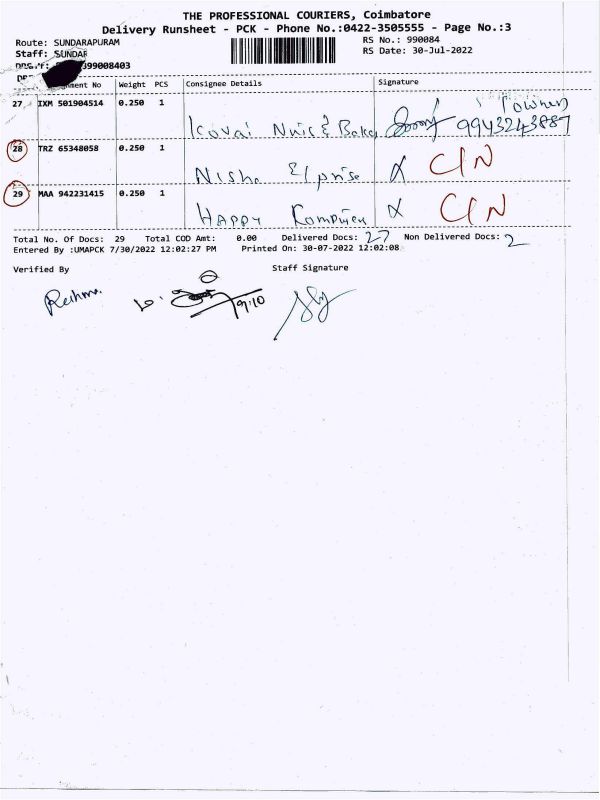 THE PROFESSIONAL COURIERS, Coimbatore
Delivery Runsheet - PCK - Phone No.:0422-3505555 - Page No.:3
Route: SUNDARAPURAM
RS No.: 990084
Staff: SUNDAR
RS Date: 30-Jul-2022
99008403
ment No Weight PCS Consignee Details Signature
27 IXM 501904514 0.250 1 Kovai Nuts & Bakes Towner
9943243887
28 TRZ 65348058 0.250 1 Nisha E/prise X C/N
29 MAA 942231415 0.250 1 HAPPY X C/N
Total No. Of Docs: 29 Total COD Amt: 0.00 Delivered Docs: 27 Non Delivered Docs: 2
Entered By :UMAPCK 7/30/2022 12:02:27 PM Printed On: 30-07-2022 12:02:08
Verified By Staff Signature